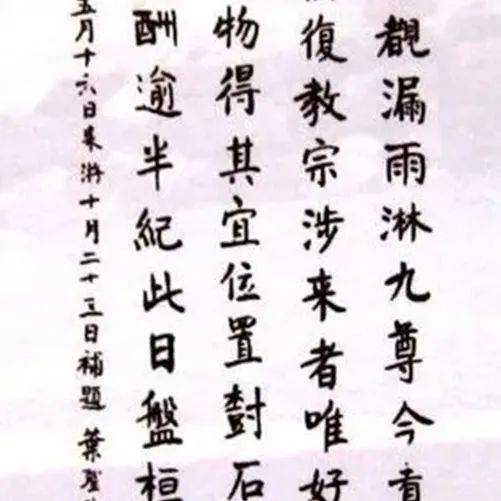 覩漏雨淋九尊今看
復教宗涉来者唯好
物得其宜位置對石
酬逾半紀此日盤桓
五月十六日来游十月二十三日補題 葉聖